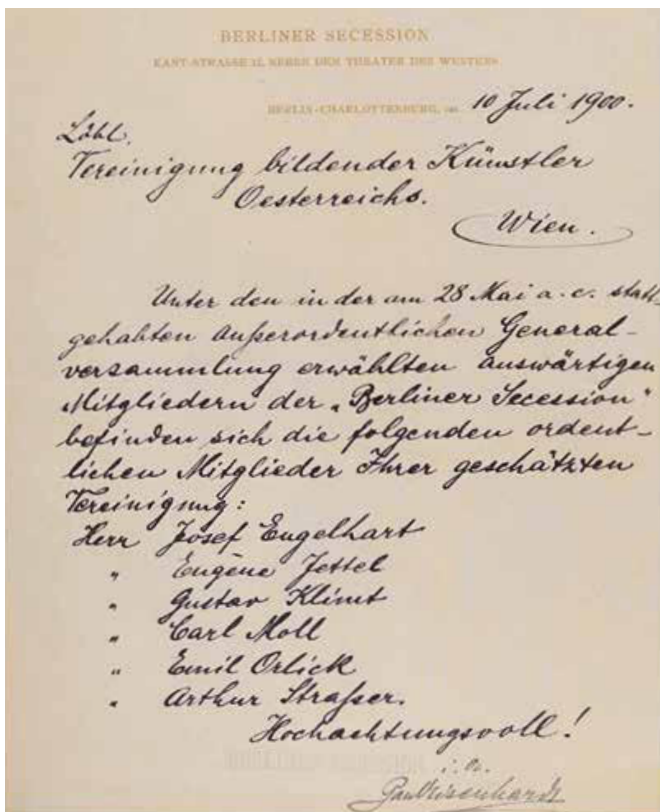 BERLINER SECESSION
KANT-STRASSE 12, NEBEN DEM THEATER DES WESTENS
BERLIN-CHARLOTTENBURG, 10 Juli 1900.
Löbl.
Vereinigung bildender Künstler
Oesterreichs.
Wien.
Unter den in der am 28 Mai a. c. statt-
gehabten außerordentlichen General-
versammlung erwählten auswärtigen
Mitgliedern der „Berliner Secession“
befinden sich die folgenden ordent-
lichen Mitglieder Ihrer geschätzten
Vereinigung:
Herr Josef Engelhart
" Eugène Jettel
" Gustav Klimt
" Carl Moll
" Emil Orlick
" Arthur Straßer.
Hochachtungsvoll!